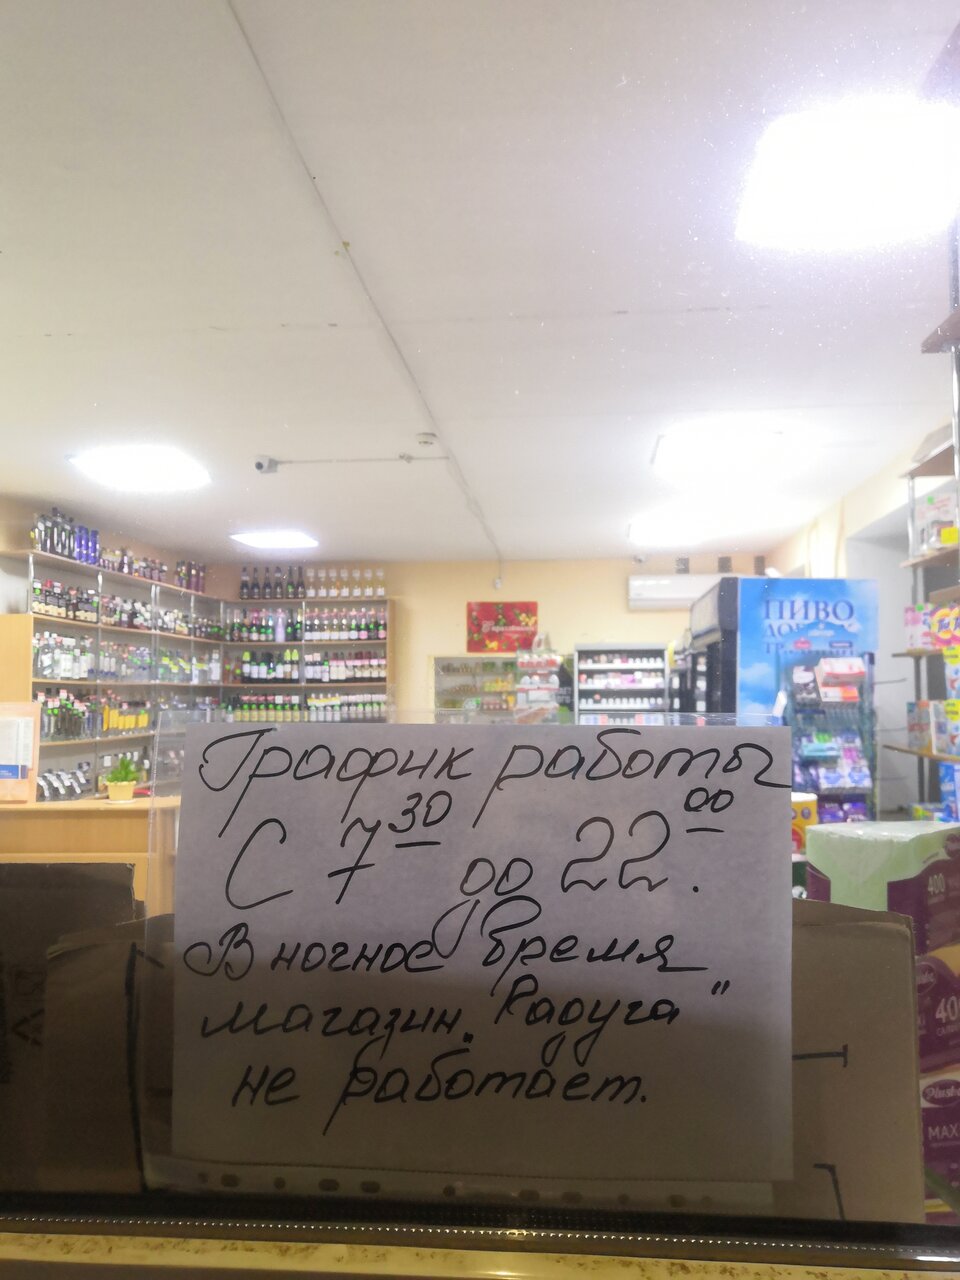 ПИВО
График работы
С 7 30 до 22 00.
В ночное время
магазин „Радуга"
не работает.
400
400
Plushe
MAX